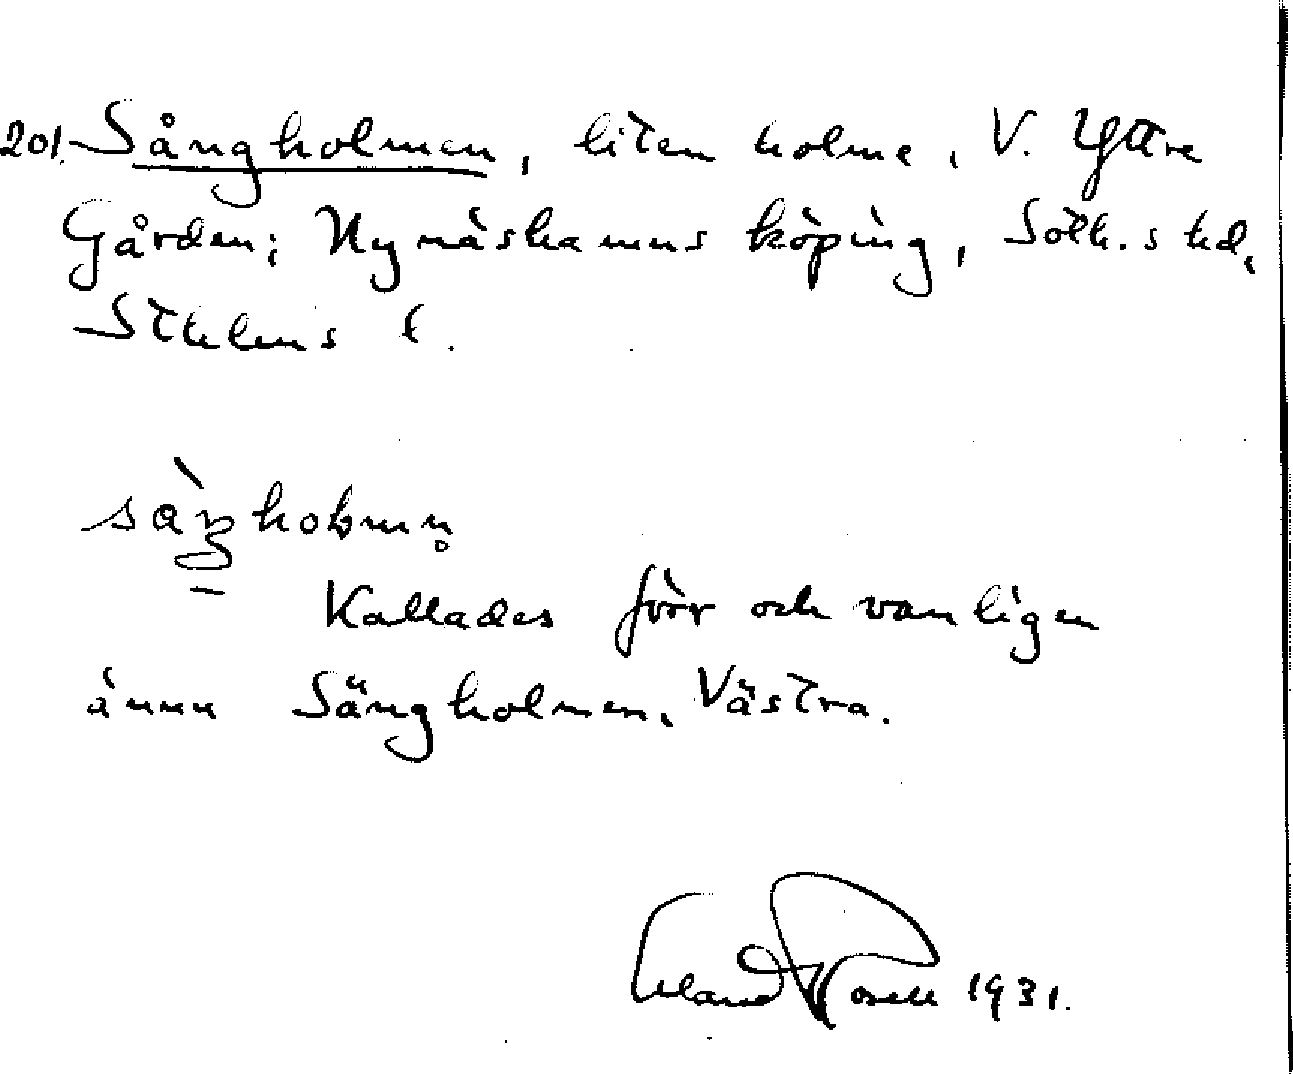 201. Sångholmen, liten holme, V. Yttre
Gården; Nynäshamns köping, Soth.s hd,
Sthlms l.
Kallades förr och vanligen
ännu Sängholmen, Västra.
Erland Rosell 1931.